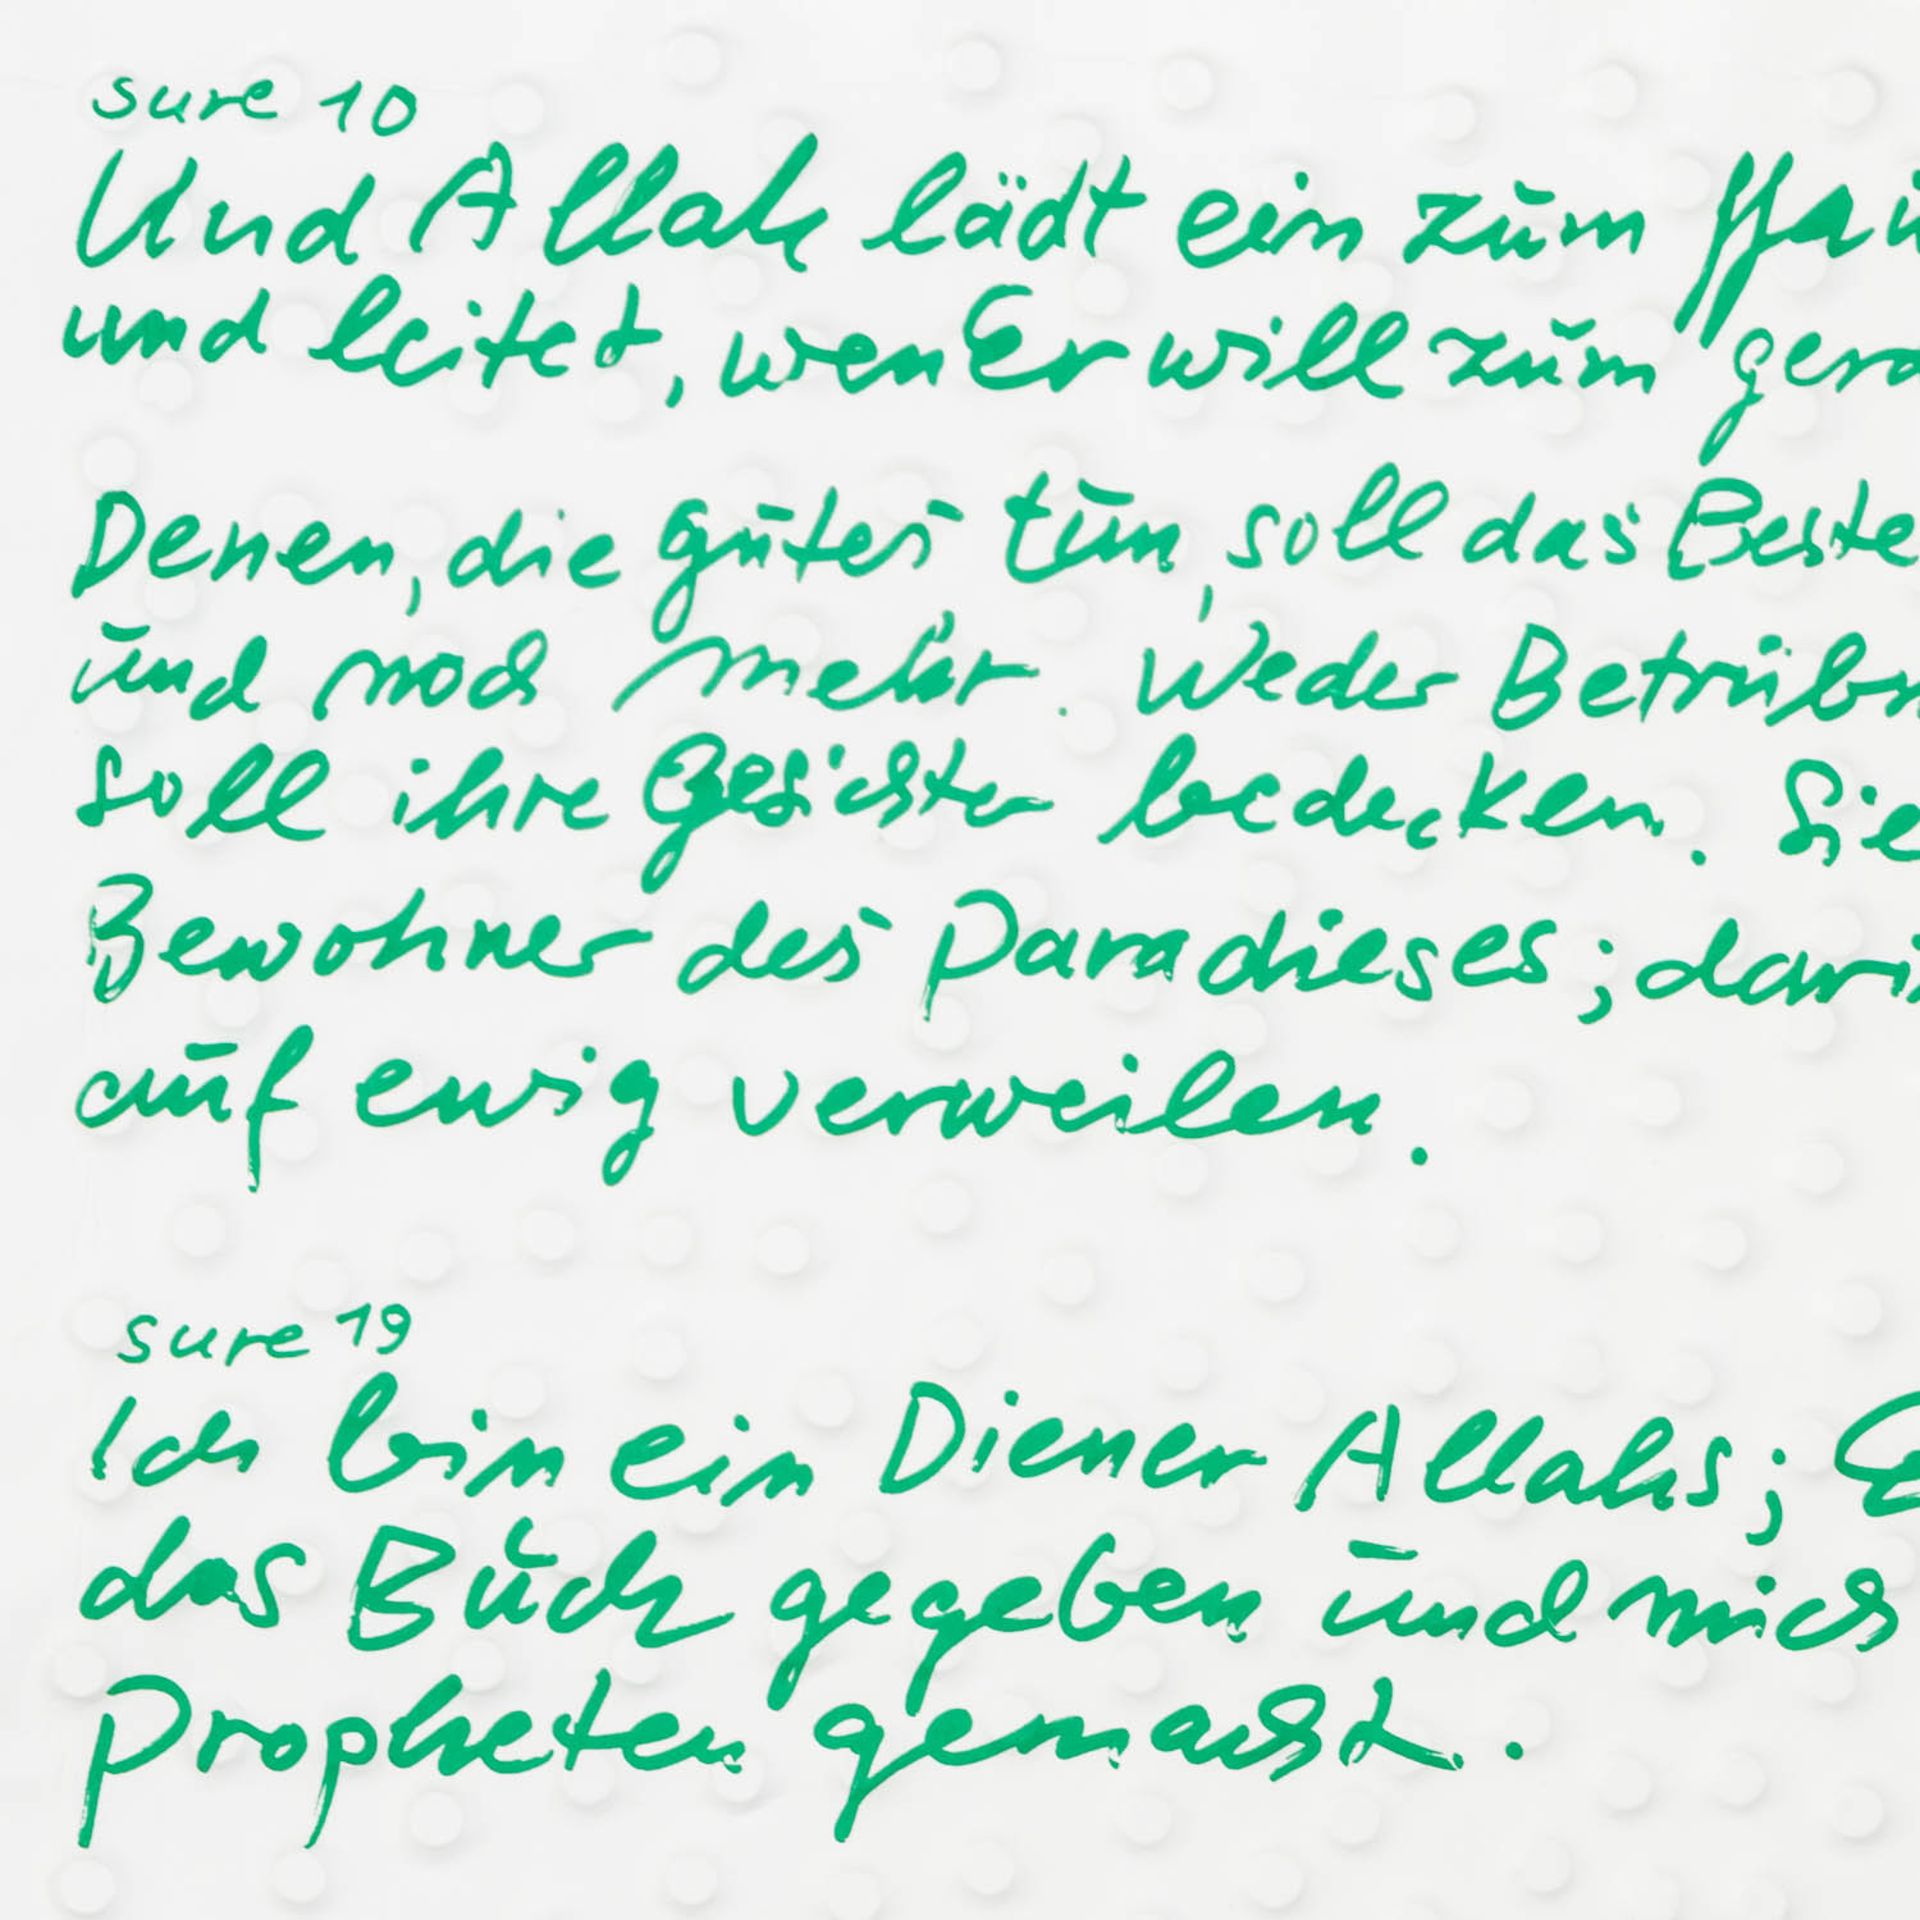 sure 10
Und Allah lädt ein zum Hau
und leitet, wen Er will zum gera
Denen, die gutes tun, soll das Beste
und noch mehr. Weder Betrübn
soll ihre Gesichter bedecken. Sie
Bewohner des Paradieses; darin
auf ewig verweilen.
sure 19
Ich bin ein Diener Allahs; E
das Buch gegeben und mich
Propheten gemacht.